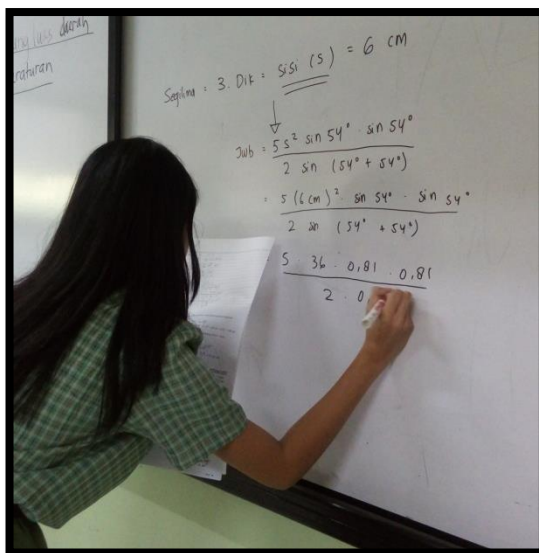 luas daerah
raturan
Segilima = 3. Dik = sisi (s) = 6 cm
Jwb = 5 s² sin 54° · sin 54°
2 sin (54° + 54°)
= 5 (6 cm)² · sin 54° · sin 54°
2 sin (54° + 54°)
5 · 36 · 0,81 · 0,81
2 · 0